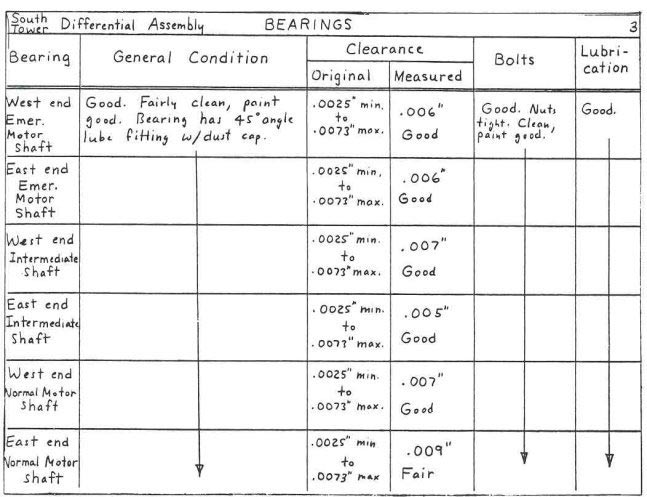 South Tower Differential Assembly BEARINGS 3
Bearing General Condition Clearance Bolts Lubri-
cation
Original Measured
West end
Emer.
Motor
Shaft
Good. Fairly clean, paint
good. Bearing has 45° angle
lube fitting w/dust cap.
.0025" min.
to
.0073" max.
.006"
Good
Good. Nuts
tight. Clean,
paint good.
Good.
East end
Emer.
Motor
Shaft
.0025" min.
to
.0073" max.
.006"
Good
West end
Intermediate
Shaft
.0025" min.
to
.0073" max.
.007"
Good
East end
Intermediate
Shaft
.0025" min.
to
.0073" max.
.005"
Good
West end
Normal Motor
Shaft
.0025" min.
to
.0073" max.
.007"
Good
East end
Normal Motor
Shaft
.0025" min
to
.0073" max
.009"
Fair